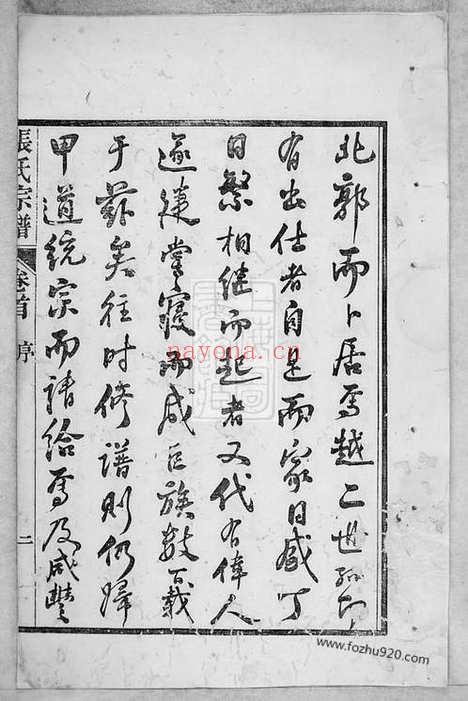 北郭而卜居焉越二世孫
有出仕者自是而家日盛丁
日繁相繼而起者又代有偉人
遂建堂寢而成巨族數百載
于茲矣往時修譜則仍歸
甲道統宗而請給焉及咸豐
張氏宗譜 卷首 序 二
nayona.cn
www.fozhu920.com